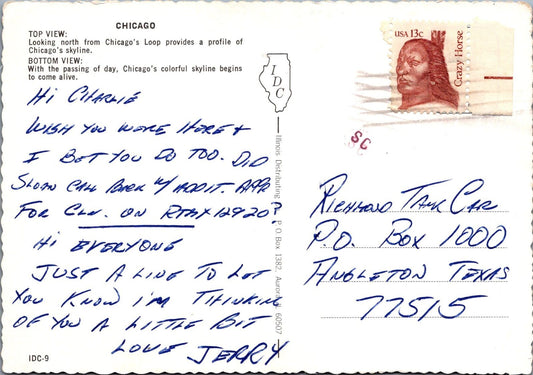 CHICAGO
TOP VIEW:
Looking north from Chicago's Loop provides a profile of
Chicago's skyline.
BOTTOM VIEW:
With the passing of day, Chicago's colorful skyline begins
to come alive.
IDC
USA 13c
Crazy Horse
SC
HI CHARLIE
WISH YOU WERE HERE &
I BET YOU DO TOO. DID
SLOAN CALL BACK W/ ADDIT. APPR
FOR CLN. ON RTMX 12920?
HI EVERYONE
JUST A LINE TO LET
YOU KNOW I'M THINKING
OF YOU A LITTLE BIT
LOVE JERRY
Illinois Distributing P O Box 1382, Aurora, 60507
RICHMOND TANK CAR
P.O. BOX 1000
ANGLETON TEXAS
77515
IDC-9